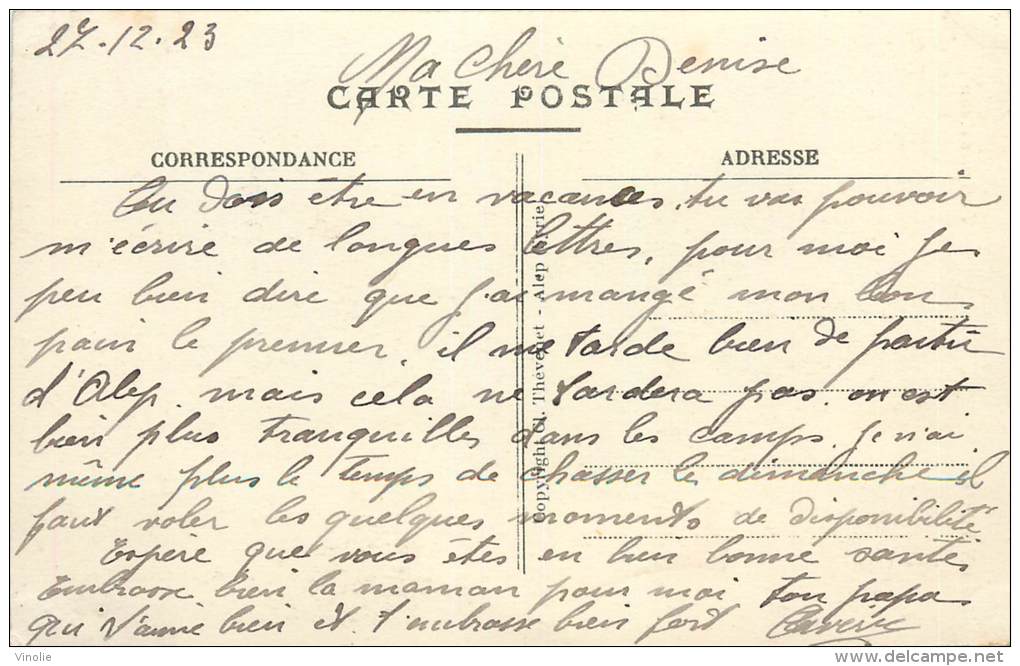 27-12-23
Ma Chère Denise
CARTE POSTALE
CORRESPONDANCE
ADRESSE
Tu dois être en vacances, tu vas pouvoir
m'écrire de longues lettres, pour moi je
peu bien dire que j'ai mangé mon bon
pain le premier, il me tarde bien de partir
d'Alep, mais cela ne tardera pas, on est
bien plus tranquilles dans les camps. Je n'ai
même plus le temps de chasser le dimanche il
faut voler les quelques moments de disponibilité
Espère que vous êtes en bien bonne santé,
Embrasse bien la maman pour moi ton papa
qui t'aime bien et t'embrasse bien fort
Copyright Cl. Thévenet - Alep Syrie
Vinolie
delcampe.net